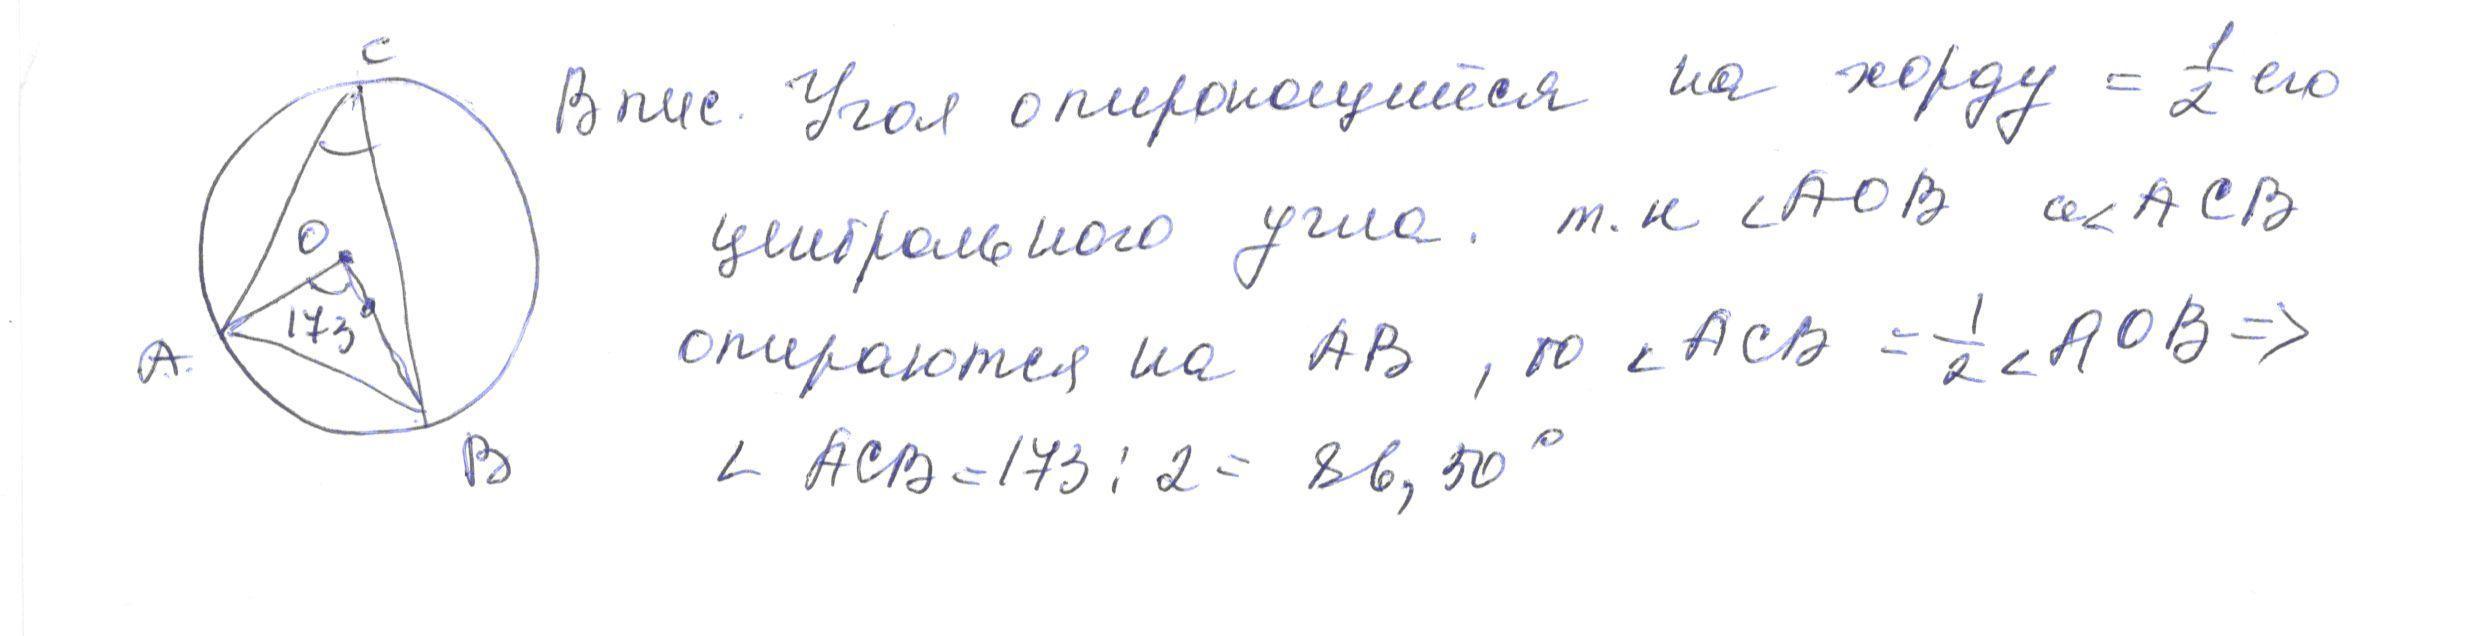 C
Впис. Угол опирающийся на хорду = 1/2 его
O
центрального угла. т.к <AOB и <ACB
173°
A.
опираются на AB, то <ACB = 1/2 <AOB =>
B
< ACB = 173 : 2 = 86,50°